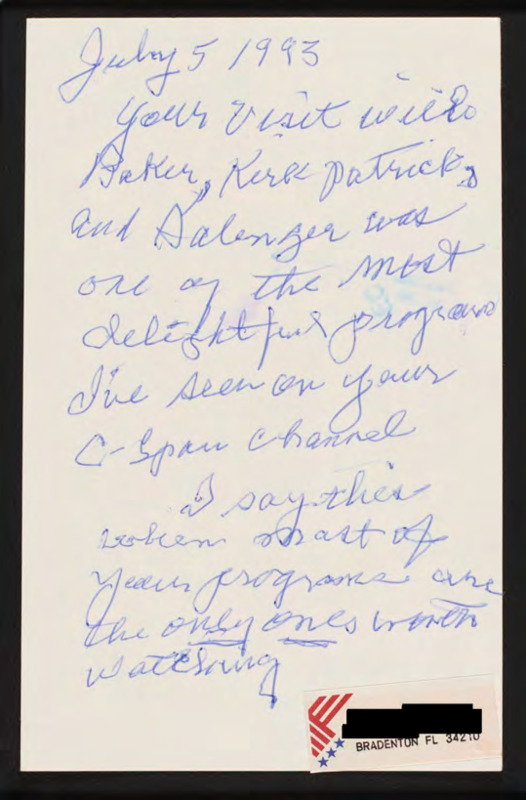 July 5 1993
Your visit with
Baker, Kirkpatrick,
and Salenger was
one of the most
delightful programs
I've seen on your
C-Span channel
I say this
when most of
your programs are
the only ones worth
watching
BRADENTON FL 34210